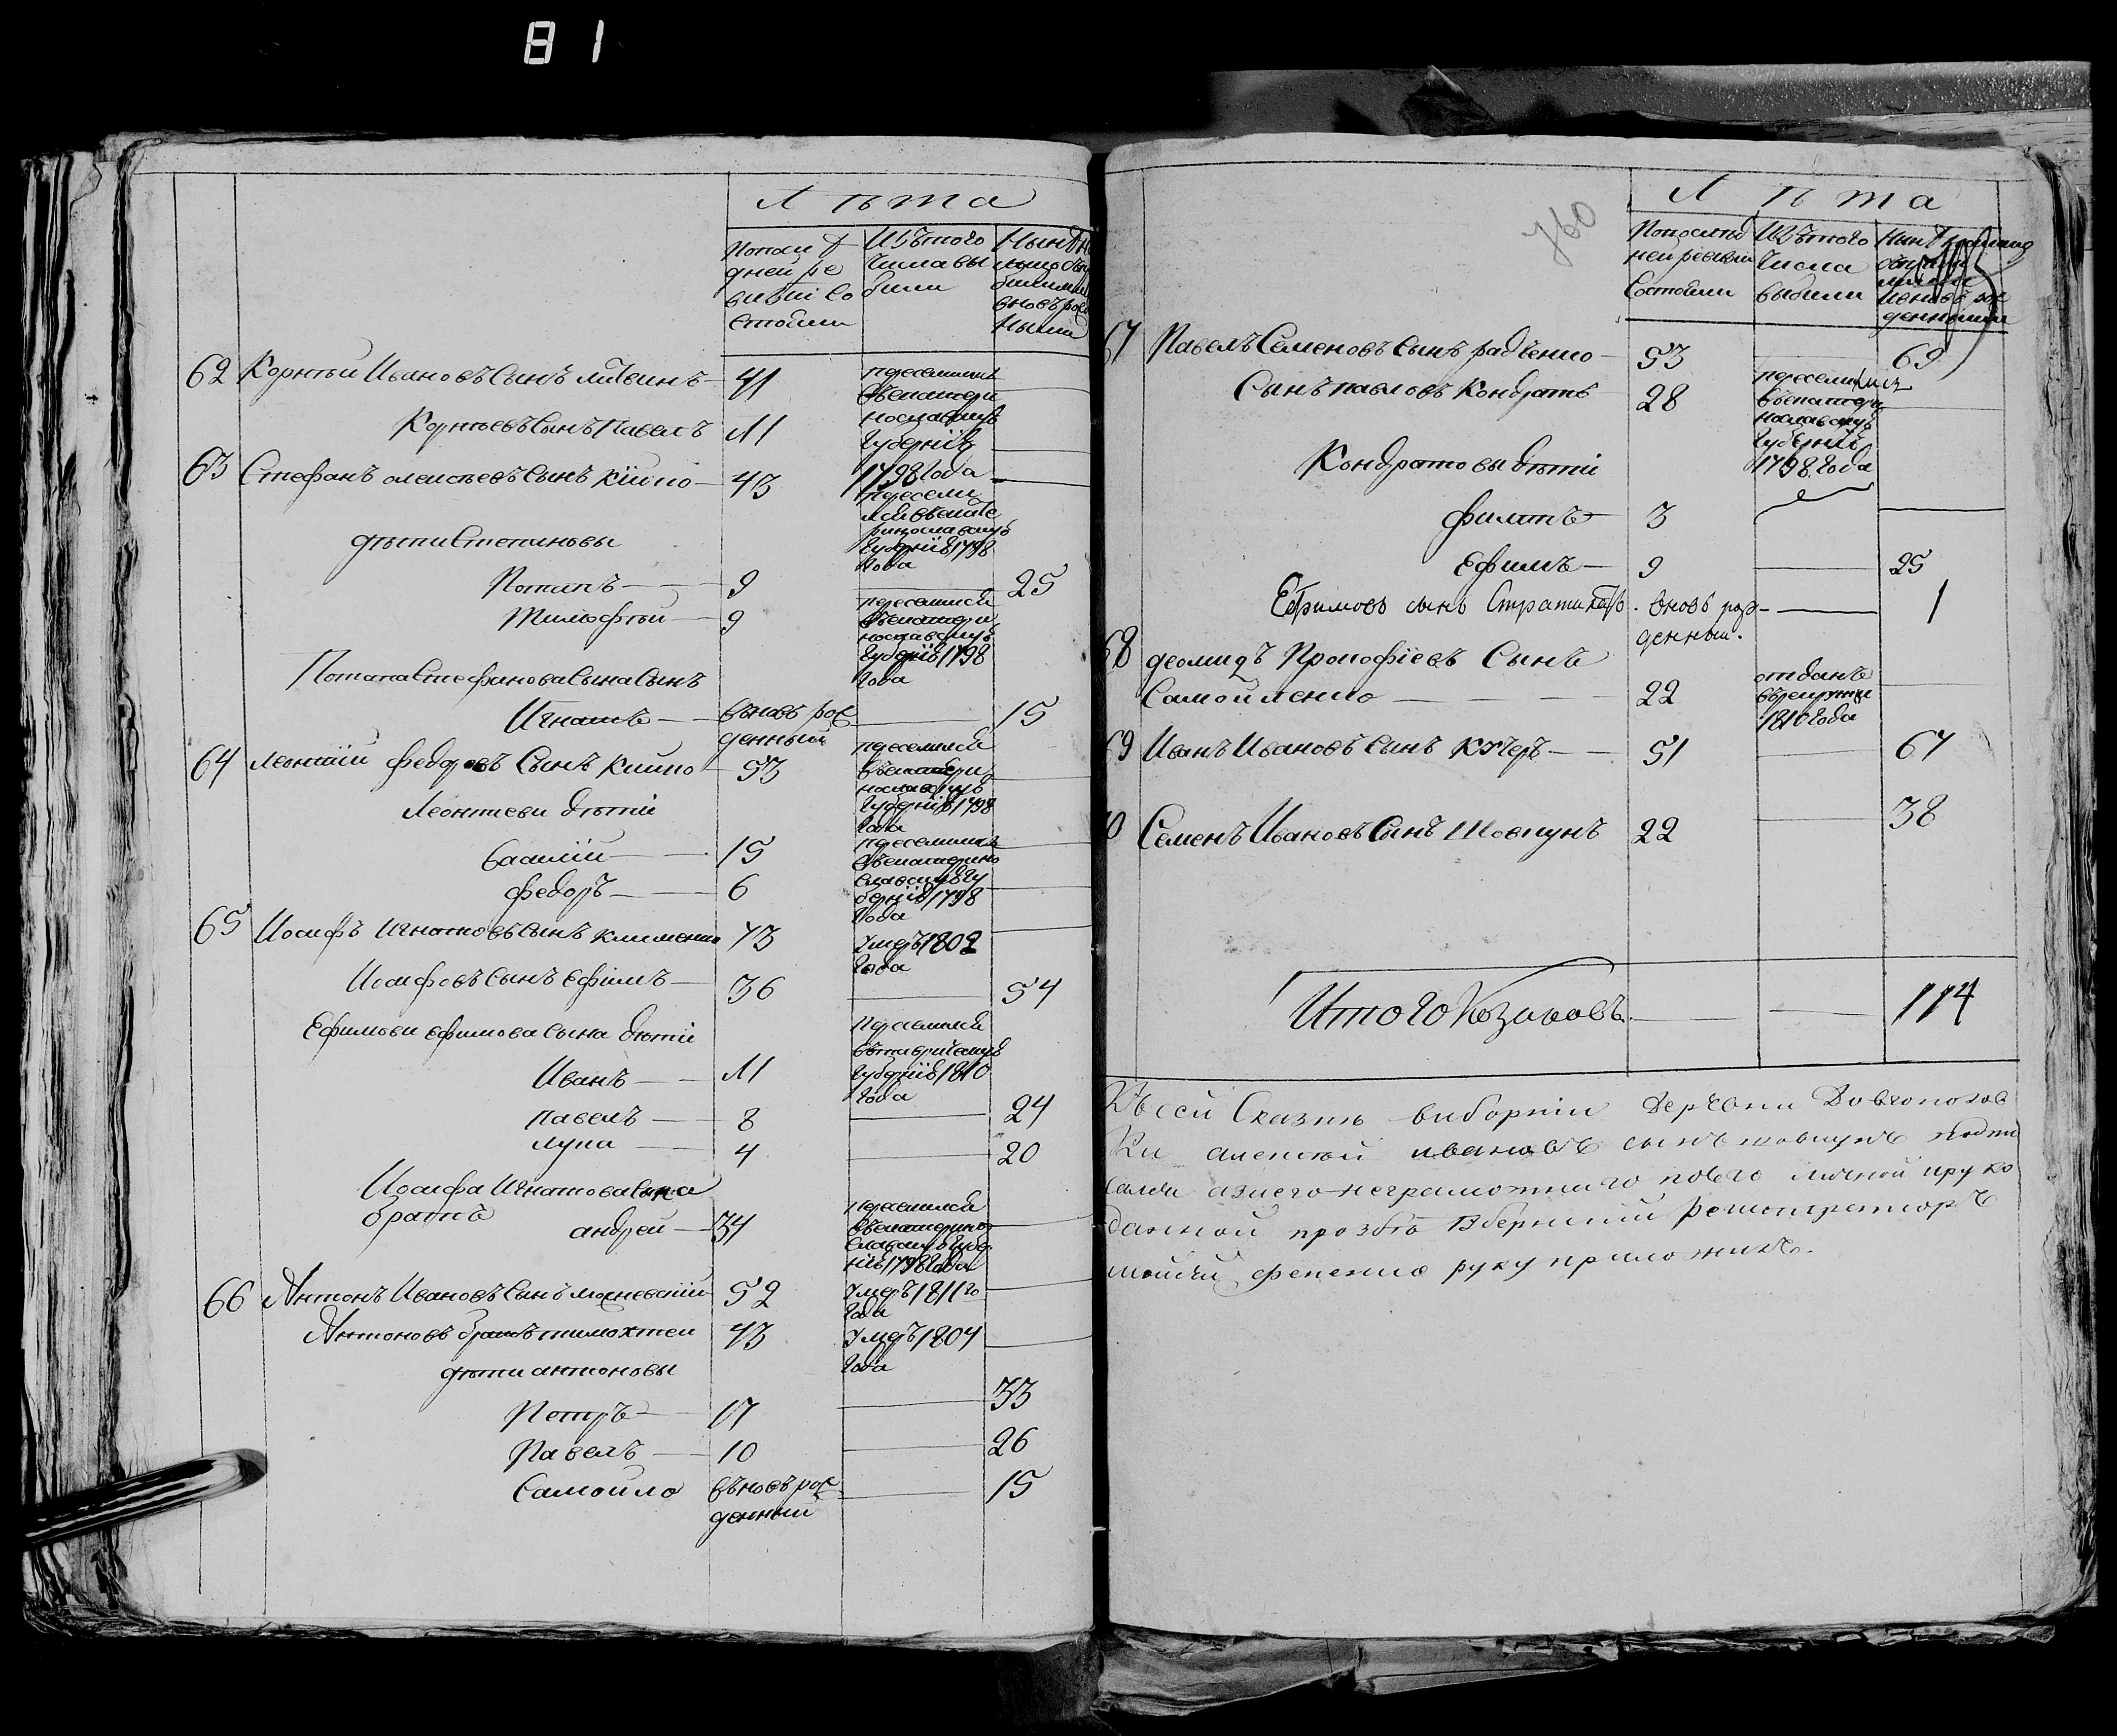 81
Лѣта
Попослѣ
дней ре
визіи со
стояли
Изътого
числавы
были
62 Корнѣй Ивановъ Сынъ литвинъ 41 переселился
въекатери
нославскую
губернію
1798 года
Корнѣевъ Сынъ Павелъ 11
63 Стефанъ алексѣевъ Сынъ Кийко 43 пересели
лся въекате
ринославскую
губернію 1798
года
дѣти Степановы
Потапъ 9 25
Тимофѣй 9 переселился
въекатери
нославскую
губернію 1798
года
Потапа Стефанова Сына Сынъ
Игнатъ вновь рож
денный 15
64 Леонтій федоровъ Сынъ Кийко 53 переселился
въекатери
нославскую
губернію 1798
года
Леонтиеви дѣти
Василій 15 переселился
въекатерино
славскую гу
бернію 1798
года
федоръ 6
65 Иосифъ Игнатовъ Сынъ клименко 73 умеръ 1802
года
Иосифовъ Сынъ Ефимъ 36 54
Ефимови ефимова сына дѣти
Иванъ 11 Переселился
въ таврическую
губернію 1810
года
павелъ 8 24
лука 4 20
Иосифа Игнатова Сына
братъ
андрей 34 переселился
въекатерино
славскую губер
нію 1798 года
66 Антонъ Ивановъ Сынъ 52 умеръ 1811го
года
Антоновъ братъ тимохтей 43 умеръ 1804
года
дѣти антоновы
Петръ 17 33
Павелъ 10 26
Самойло вновь рож
денный 15
760
Лѣта
Попослѣд
ней ревизіи
состояли
Изътого
числа
выбыли
67 Павелъ Семеновъ Сынъ радченко 53 69
Сынъ павловъ Кондратъ 28 переселились
въекатери
нославскую
губернію
1798 года
Кондратовы дѣти
филатъ 3
Ефимъ 9 25
Ефимовъ сынъ вновь рож
денный. 1
68 деомидъ Прокофіевъ Сынъ
Самойленко 22 отданъ
врекруты
1810 года
69 Иванъ Ивановъ Сынъ Кучеръ 51 67
70 Семенъ Ивановъ Сынъ Шовкунъ 22 38
Итого Козаковъ 114
Ксей Сказкѣ виборній Деревни Довгополов
ки алексѣй ивановъ сынъ шовкунъ
азаего неграмотнаго поего личной ируко
данной прозбѣ Губернскій Регистраторъ
руку приложилъ.